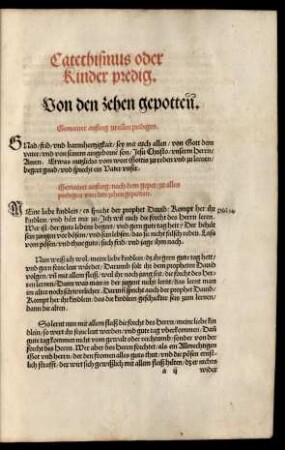 Catechismus oder
Kinder predig.
Von den zehen gepotten.
Gemainer anfang zu allen predigen.
GNad, frid, vnd barmhertzigkeit, sey mit euch allen, von Gott dem
vater, vnd von seinem aingebornē son, Jesu Christo, vnserm Herrn,
Amen. Etwas nutzlichs vom wort Gottis zu reden vnd zu lernen,
begert gnad, vnd sprecht ein Vater vnser.
Gemainer anfang, nach dem gepet, zu allen
predigen von den zehen gepotten.
MEine liebe kindlein, es spricht der prophet Dauid, Kompt her ihr
kindlein, vnd hört mir zu, Jch wil euch die forcht des Herrn leren.
Wer ist der guts lebens begert, vnd gern gut tag hett, Der behüt
sein zungen vor bösem, vnd sein lebsen, das sie nicht felschlich redē, Lass
vom bösen, vnd thue guts, such frid, vnd jage ihm nach.
Nun weiß ich wol, meine liebe kindlein, dz ihr gern gute tag hett,
vnd gern feine leut würdet, Darumb solt ihr dem propheten Dauid
volgen, vñ mit allem fleiß, weil ihr noch jung seit, die forcht des Her-
ren lernen, Dann was man in der jugent nicht lernt, das lernt man
im alter noch schwerlicher, Darumb spricht auch der prophet Dauid,
Kompt her ihr kindlein, das die kindlein geschickter sein zum lernen,
dann die alten.
So lernt nun mit allem fleiß die forcht des Herrn, meine liebe kin
dlein, so wert ihr feine leut werden, vnd gute tag vberkommen, Dañ
gute tag kommen nicht vom gewalt oder reichtumb, sonder von der
forcht des Herrn, Wer aber den Herrn förchtet, als ein Allmechtigen
Got vnd herrn, der den fromen alles guts thut, vnd die bösen ernst-
lich strafft, der wirt sich gewißlich mit allem fleiß hüten, dz er nichts
a ij wider